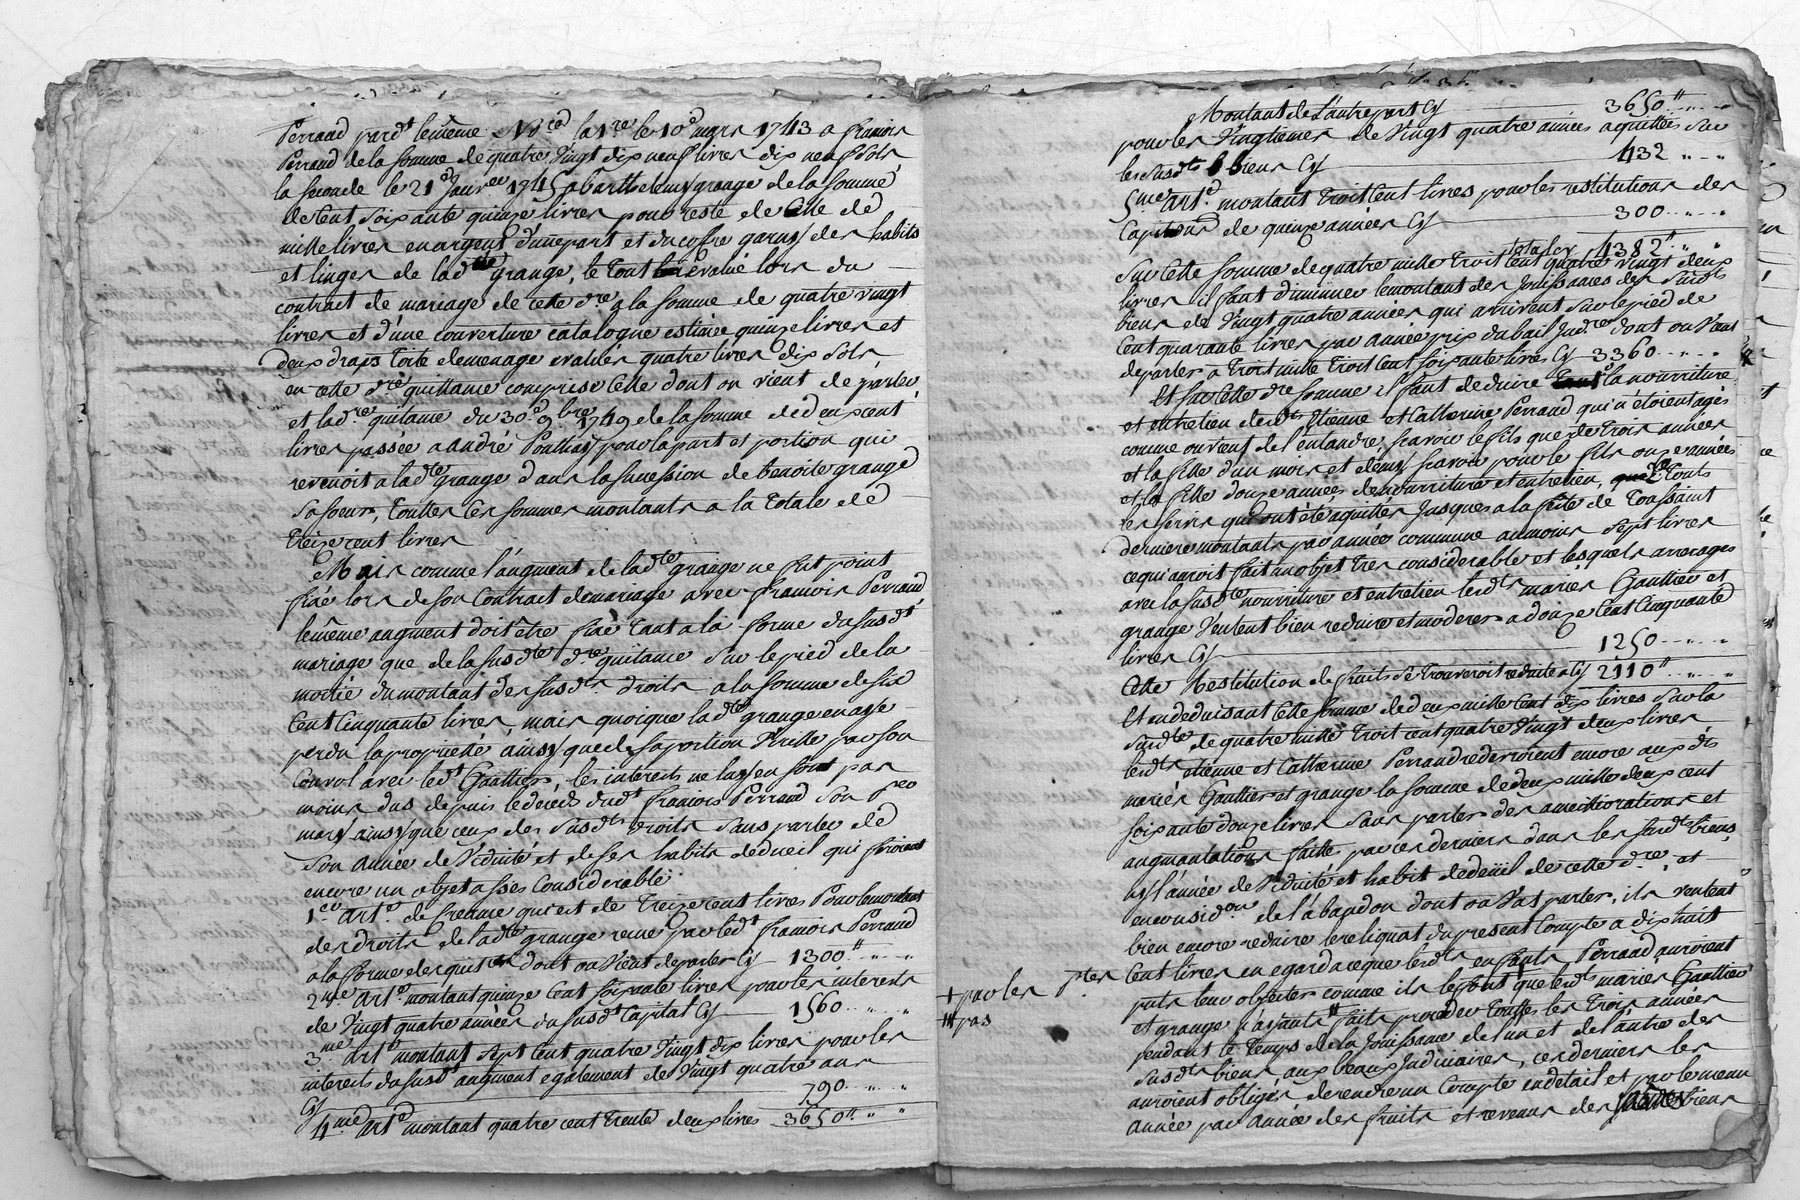 Perraud pard.t lemême N.re la 1.re le 10.e mars 1743 a francois
Perraud de la somme de quatre vingt dix neuf livres dix neuf sols
la seconde le 21.e Janv.er 1745 a barthelemy grange de la somme
de Cent soixante quinze livres pour reste de Celle de
mille livres en argent d'une part et du coffre garny des habits
et linges de lad.te grange, le tout évalué lors du
contract de mariage de cette d.re a la somme de quatre vingt
livres et d'une couverture catalogne estimée quinze livres et
deux draps toile de menage evalués quatre livres dix sols
en cette d.re quittance comprise Celle dont on vient de parler
et la d.re quitance du 30.e 9.bre 1749 de la somme de deux cent
livres passée a andré Ponthus pour la part et portion qui
revenoit a lad.te grange dans la succession de benoite grange
sa soeur, toutes ces sommes montants a la totale de
treize cent livres
Mais comme l'augment de lad.te grange ne fut point
fixé lors de son Contract de mariage avec francois Perraud
lemême augment doit être fixé tant a la forme du susd.t
mariage que de la susd.te d.re quitance sur le pied de la
moitié du montant des susd.ts droits a la somme de six
Cent Cinquante livres, mais quoique lad.te grange en aye
perdu la proprieté ainsy que de sa portion virille par son
Convol avec led.t Gaultier, les interets ne luy en sont pas
moins dus depuis le décès dud.t francois Perraud son p.er
mary ainsy que ceux des susd.ts droits sans parler de
son année de viduité et de ses habits de dueil qui feroient
encore un objet assés Considerable
1.er art.e de freanne qui est de treize cent livres Pour le montant
des droits de lad.te grange reçus par led.t francois Perraud
a la forme des quit.ces dont on vient de parler Cy 1300 ʺ ʺ
2.me art.e montant quinze Cent soixante livres pour les interets
de vingt quatre années du susd.t Capital Cy 1560 ʺ ʺ
3.me art.e montant sept Cent quatre vingt dix livres pour les
interets du susd.t augment egalement de vingt quatre ans
Cy 790 ʺ ʺ
4.me art.e montant quatre cent trente deux livres 3650 ʺ ʺ
Montant de l'autre part Cy 3650 ʺ ʺ
pour les Vingtiemes de Vingt quatre années aquittés sur
les susd.ts biens Cy 432 ʺ ʺ
5.me art.e montant trois Cent livres pour les restitutions des
Capitons de quinze années Cy 300 ʺ ʺ
total cy 4382 ʺ ʺ
Sur Cette somme de quatre mille trois Cent quatre vingt deux
livres il faut diminuer le montant des Jouissances des susd.ts
biens de Vingt quatre années qui arrivent sur le pied de
Cent quarante livres par année prix du bail Jud.re dont on vient
de parler a trois mille trois Cent soixante livres Cy 3360 ʺ ʺ
Et sur cette d.re somme il faut deduire la nourriture
et entretien desd.ts Etienne et Catherine Perraud qui n'étoient agés
comme on vient de l'entandre, scavoir le fils que de trois années
et la fille d'un mois et demy scavoir pour le fils onze années
et la fille douze années de nourriture et entretien, touts
les servis qui ont été aquittés Jusques a la fête de Toussaint
derniere montants par année commune au moins sept livres
ce qui auroit fait un objet tres considerable et lesquels arrerages
avec la susd.te nourriture et entretien lesd.ts mariés Gaultier et
grange veulent bien reduire et moderer a douze Cent Cinquante
livres Cy 1250 ʺ ʺ
Cette Restitution de fruits se trouveroit reduite a Cy 2110 ʺ ʺ
Et en deduisant Cette somme de deux mille Cent dix livres sur la
susd.te de quatre mille trois cent quatre vingt deux livres
lesd.ts etienne et Catherine Perraud redevroient encore aux d.ts
mariés Gaultier et grange la somme de deux mille deux cent
soixante douze livres sans parler des ameiliorations et
augmantations faittes par ces derniers dans les susd.ts biens
ny l'année de viduité et habit de deuil de cette d.re, et
en consid.on de l'abandon dont on vat parler, ils veulent
bien encore reduire le reliquat du present Compte a dix huit
Cent livres en egard a ceque lesd.ts enfants Perraud auroient
puts leur objecter comme ils le font que lesd.ts mariés Gaultier
et grange n'ayants faits proceder touttes les trois années
pendant le temps de la Jouissance de l'un et de l'autre des
susd.ts biens aux beaux Judiciaires, ces derniers les
auroient obligés de rendre un Compte en detail et par le menu
année par année des fruits et revenus des biens
+ par les p.tes
pas